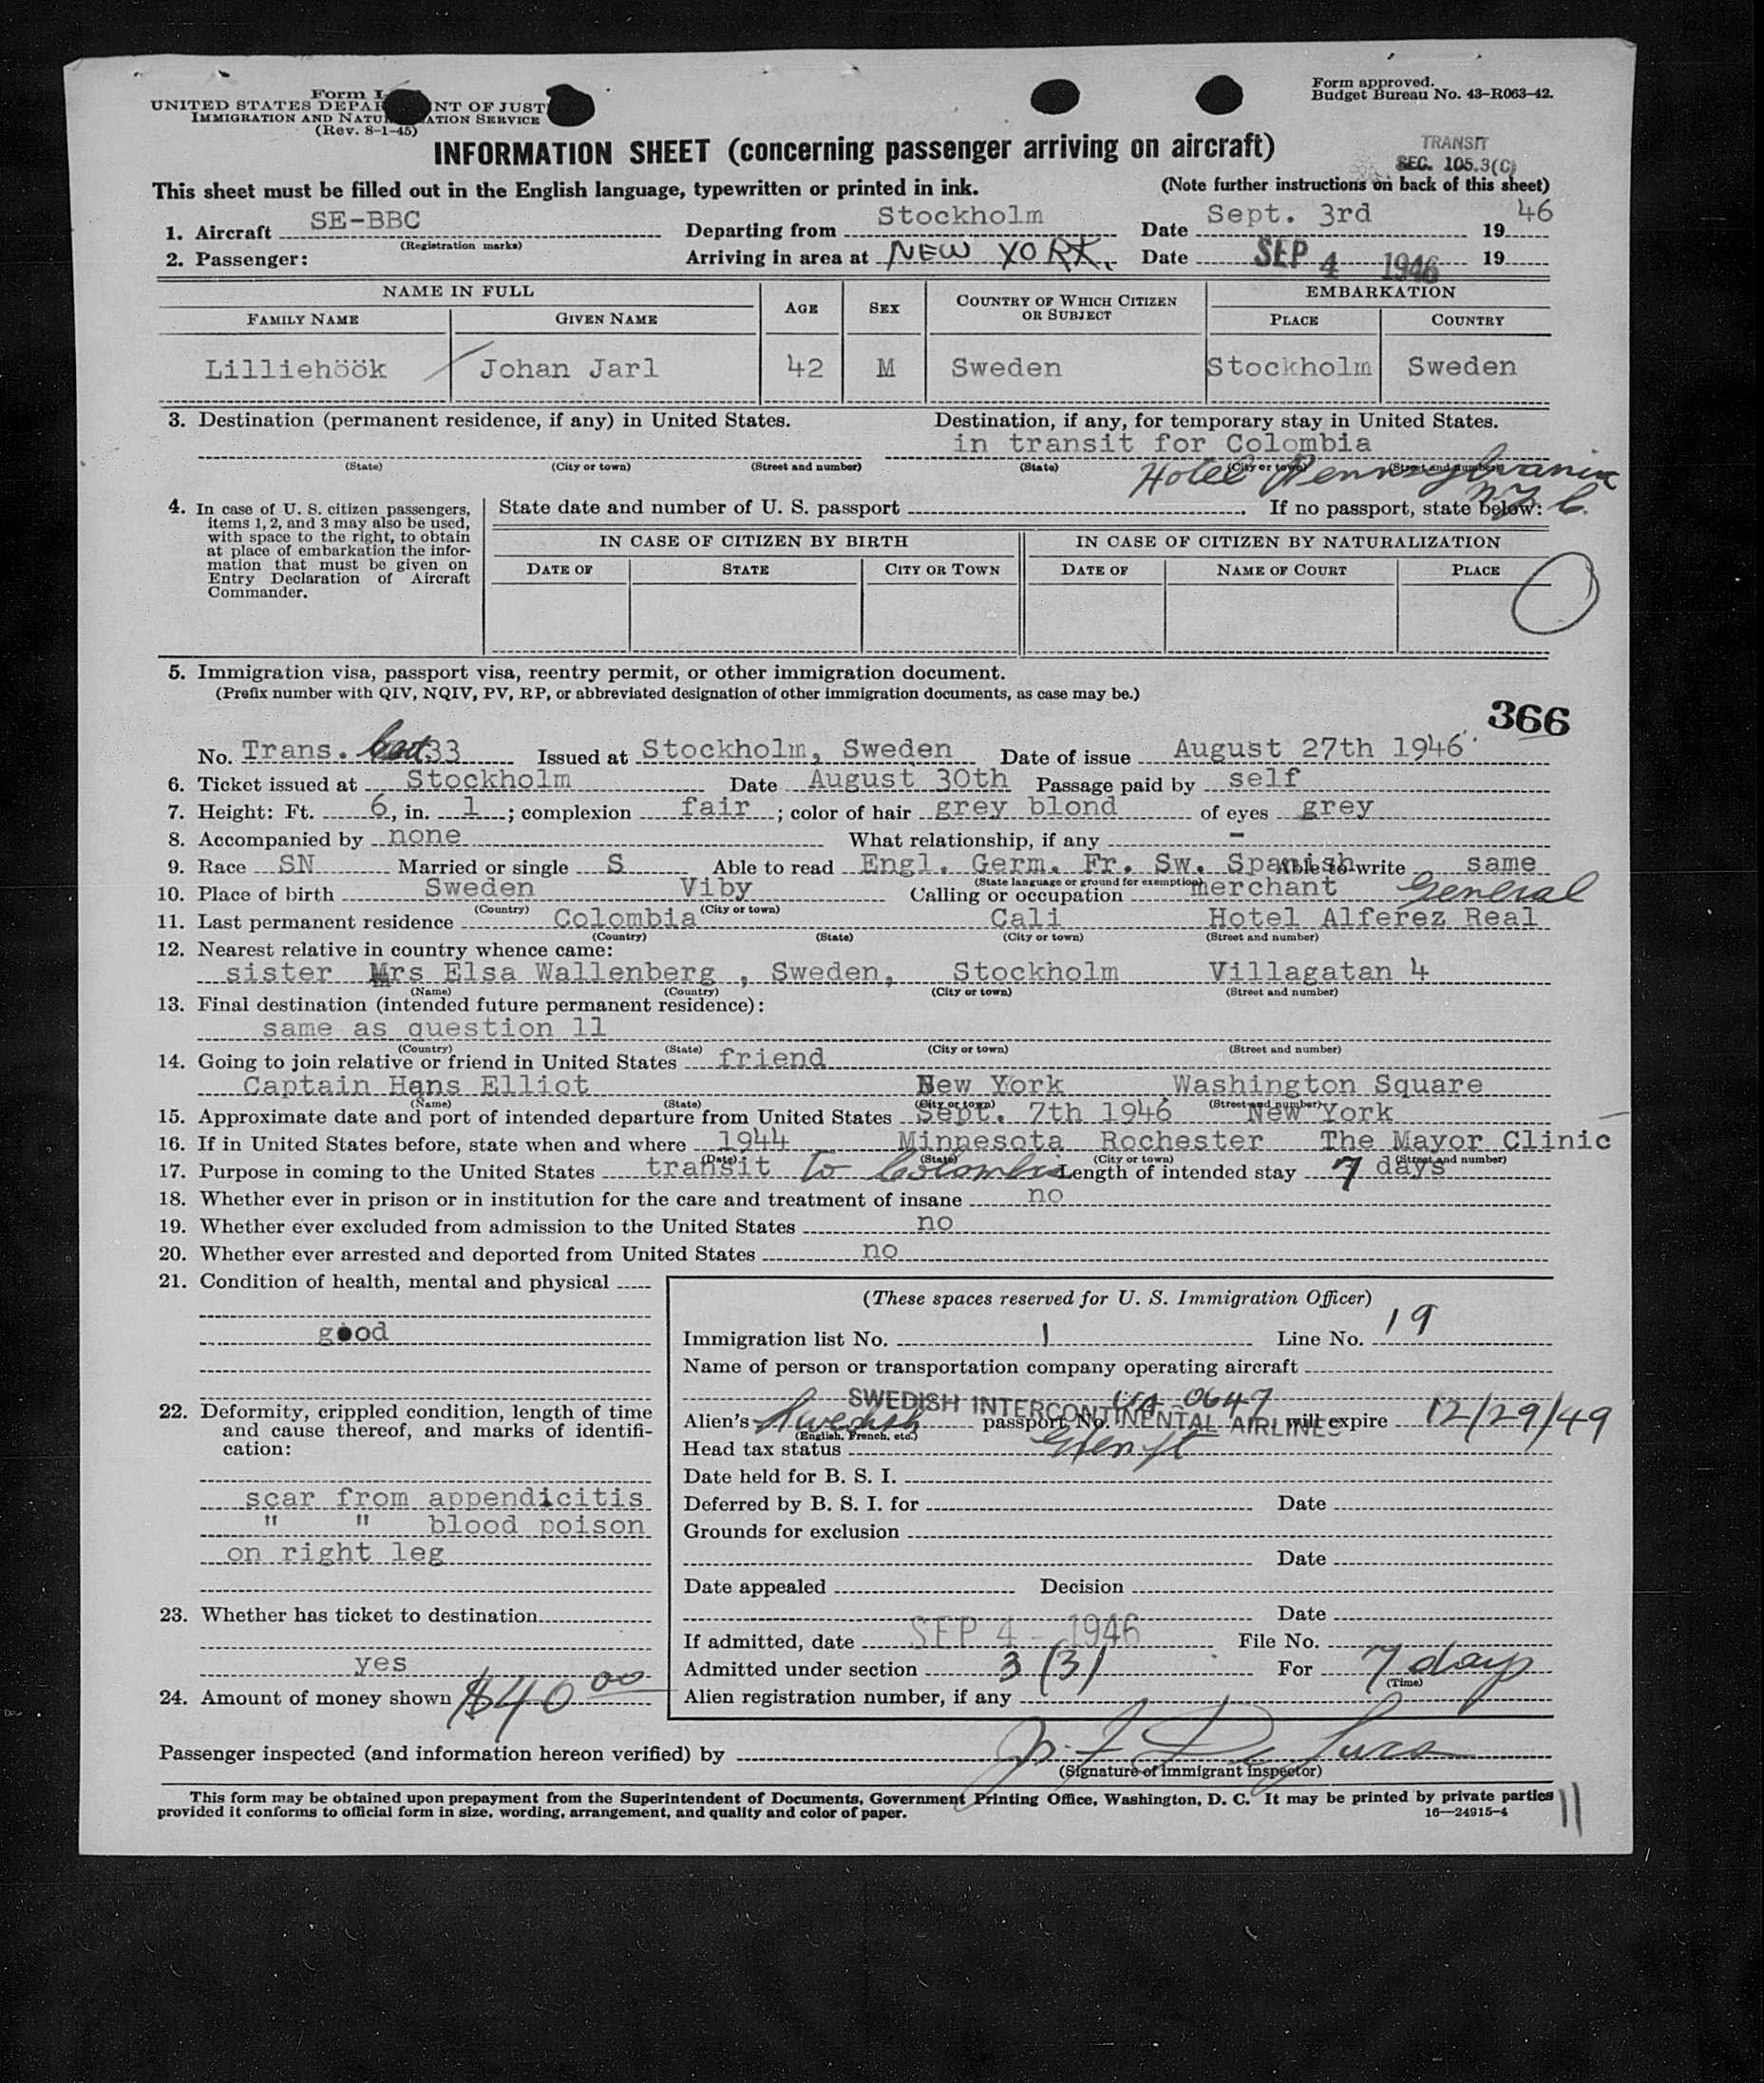 Form I
UNITED STATES DEPAR NT OF JUST
IMMIGRATION AND NATU ATION SERVICE
(Rev. 8-1-45)
Form approved.
Budget Bureau No. 43-R063-42.
INFORMATION SHEET (concerning passenger arriving on aircraft)
TRANSIT
SEC. 105.3(C)
This sheet must be filled out in the English language, typewritten or printed in ink. (Note further instructions on back of this sheet)
1. Aircraft SE-BBC Departing from Stockholm Date Sept. 3rd 1946
(Registration marks)
2. Passenger: Arriving in area at NEW YORK. Date SEP 4 1946 19
NAME IN FULL AGE SEX COUNTRY OF WHICH CITIZEN OR SUBJECT EMBARKATION
FAMILY NAME GIVEN NAME PLACE COUNTRY
Lilliehöök Johan Jarl 42 M Sweden Stockholm Sweden
3. Destination (permanent residence, if any) in United States. Destination, if any, for temporary stay in United States.
in transit for Colombia
(State) (City or town) (Street and number) (State) (City or town) (Street and number)
Hotel Pennsylvania
N.Y.C.
4. In case of U. S. citizen passengers, items 1, 2, and 3 may also be used, with space to the right, to obtain at place of embarkation the information that must be given on Entry Declaration of Aircraft Commander.
State date and number of U. S. passport . If no passport, state below:
IN CASE OF CITIZEN BY BIRTH IN CASE OF CITIZEN BY NATURALIZATION
DATE OF STATE CITY OR TOWN DATE OF NAME OF COURT PLACE
5. Immigration visa, passport visa, reentry permit, or other immigration document.
(Prefix number with QIV, NQIV, PV, RP, or abbreviated designation of other immigration documents, as case may be.)
366
No. Trans. Cert 33 Issued at Stockholm, Sweden Date of issue August 27th 1946
6. Ticket issued at Stockholm Date August 30th Passage paid by self
7. Height: Ft. 6, in. 1; complexion fair; color of hair grey blond of eyes grey
8. Accompanied by none What relationship, if any -
9. Race SN Married or single S Able to read Engl. Germ. Fr. Sw. Spanish Able to write same
(State language or ground for exemption)
10. Place of birth Sweden Viby Calling or occupation merchant General
(Country) (City or town)
11. Last permanent residence Colombia Cali Hotel Alferez Real
(Country) (State) (City or town) (Street and number)
12. Nearest relative in country whence came:
sister Mrs Elsa Wallenberg, Sweden, Stockholm Villagatan 4
(Name) (Country) (City or town) (Street and number)
13. Final destination (intended future permanent residence):
same as question 11
(Country) (State) (City or town) (Street and number)
14. Going to join relative or friend in United States friend
Captain Hans Elliot New York Washington Square
(Name) (State) (City or town) (Street and number)
15. Approximate date and port of intended departure from United States Sept. 7th 1946 New York
16. If in United States before, state when and where 1944 Minnesota Rochester The Mayor Clinic
(Date) (State) (City or town) (Street and number)
17. Purpose in coming to the United States transit to Colombia Length of intended stay 7 days
18. Whether ever in prison or in institution for the care and treatment of insane no
19. Whether ever excluded from admission to the United States no
20. Whether ever arrested and deported from United States no
21. Condition of health, mental and physical
good
22. Deformity, crippled condition, length of time and cause thereof, and marks of identification:
scar from appendicitis
" " blood poison
on right leg
23. Whether has ticket to destination
yes
24. Amount of money shown $40 00
(These spaces reserved for U. S. Immigration Officer)
Immigration list No. 1 Line No. 19
Name of person or transportation company operating aircraft
SWEDISH INTERCONTINENTAL AIRLINES
Alien's Swedish passport No. 0647 will expire 12/29/49
(English, French, etc.)
Head tax status
Date held for B. S. I.
Deferred by B. S. I. for Date
Grounds for exclusion
Date
Date appealed Decision
Date
If admitted, date SEP 4 - 1946 File No.
Admitted under section 3 (3) For 7 days
(Time)
Alien registration number, if any
Passenger inspected (and information hereon verified) by
(Signature of Immigrant Inspector)
This form may be obtained upon prepayment from the Superintendent of Documents, Government Printing Office, Washington, D. C. It may be printed by private parties
provided it conforms to official form in size, wording, arrangement, and quality and color of paper. 16—24915-4
11